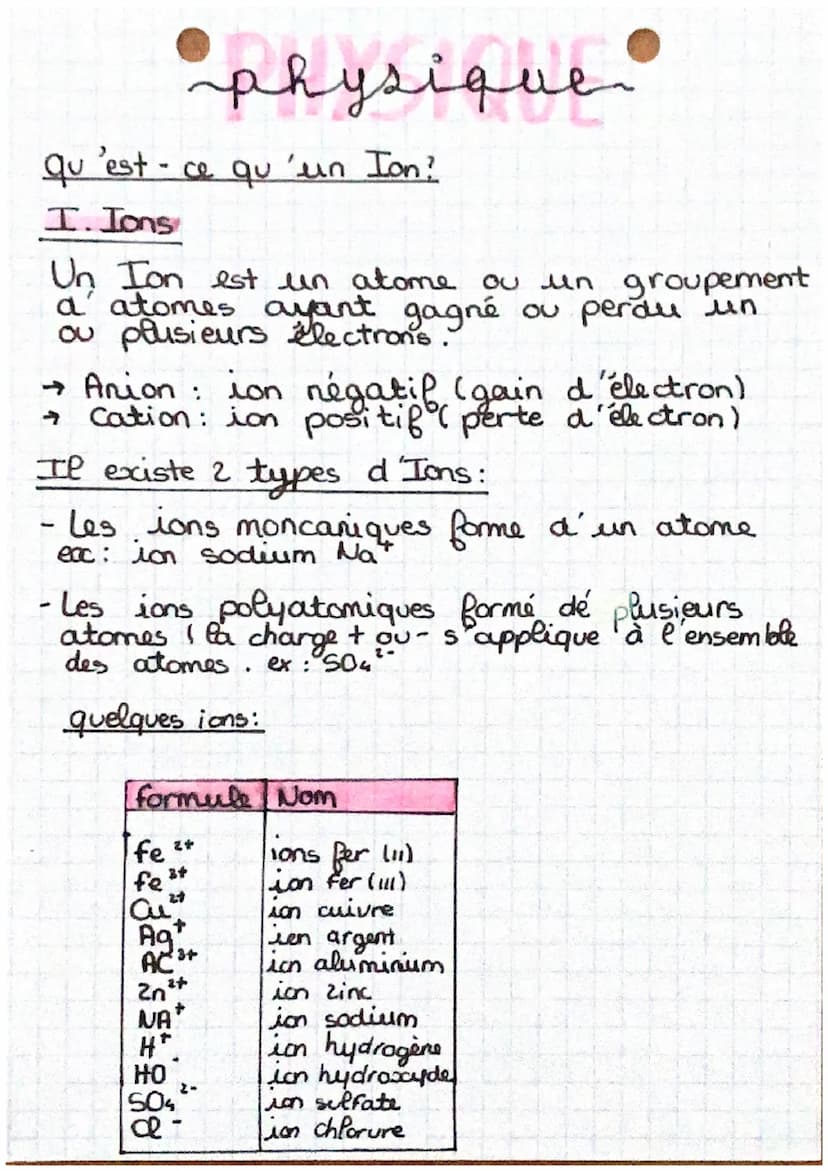 PHYSIQUE
physique
qu'est-ce qu'un Ion?
I. Ions
Un Ion est un atome ou un groupement
d'atomes ayant gagné ou perdu un
ou plusieurs électrons.
→ Anion : ion négatif (gain d'électron)
→ Cation : ion positif (perte d'électron)
Il existe 2 types d'Ions:
- Les ions moncaniques forme d'un atome
ex : ion sodium Na⁺
- Les ions polyatomiques formé de plusieurs
atomes ( la charge + ou - s'applique à l'ensemble
des atomes. ex : SO₄²⁻
quelques ions:
formule Nom
fe ²⁺ ions fer (II)
fe ³⁺ ion fer (III)
Cu ²⁺ ion cuivre
Ag⁺ ion argent
Al ³⁺ ion aluminium
Zn²⁺ ion zinc
NA⁺ ion sodium
H⁺ ion hydrogène
HO⁻ ion hydroxyde
SO₄ ²⁻ ion sulfate
Cl⁻ ion chlorure